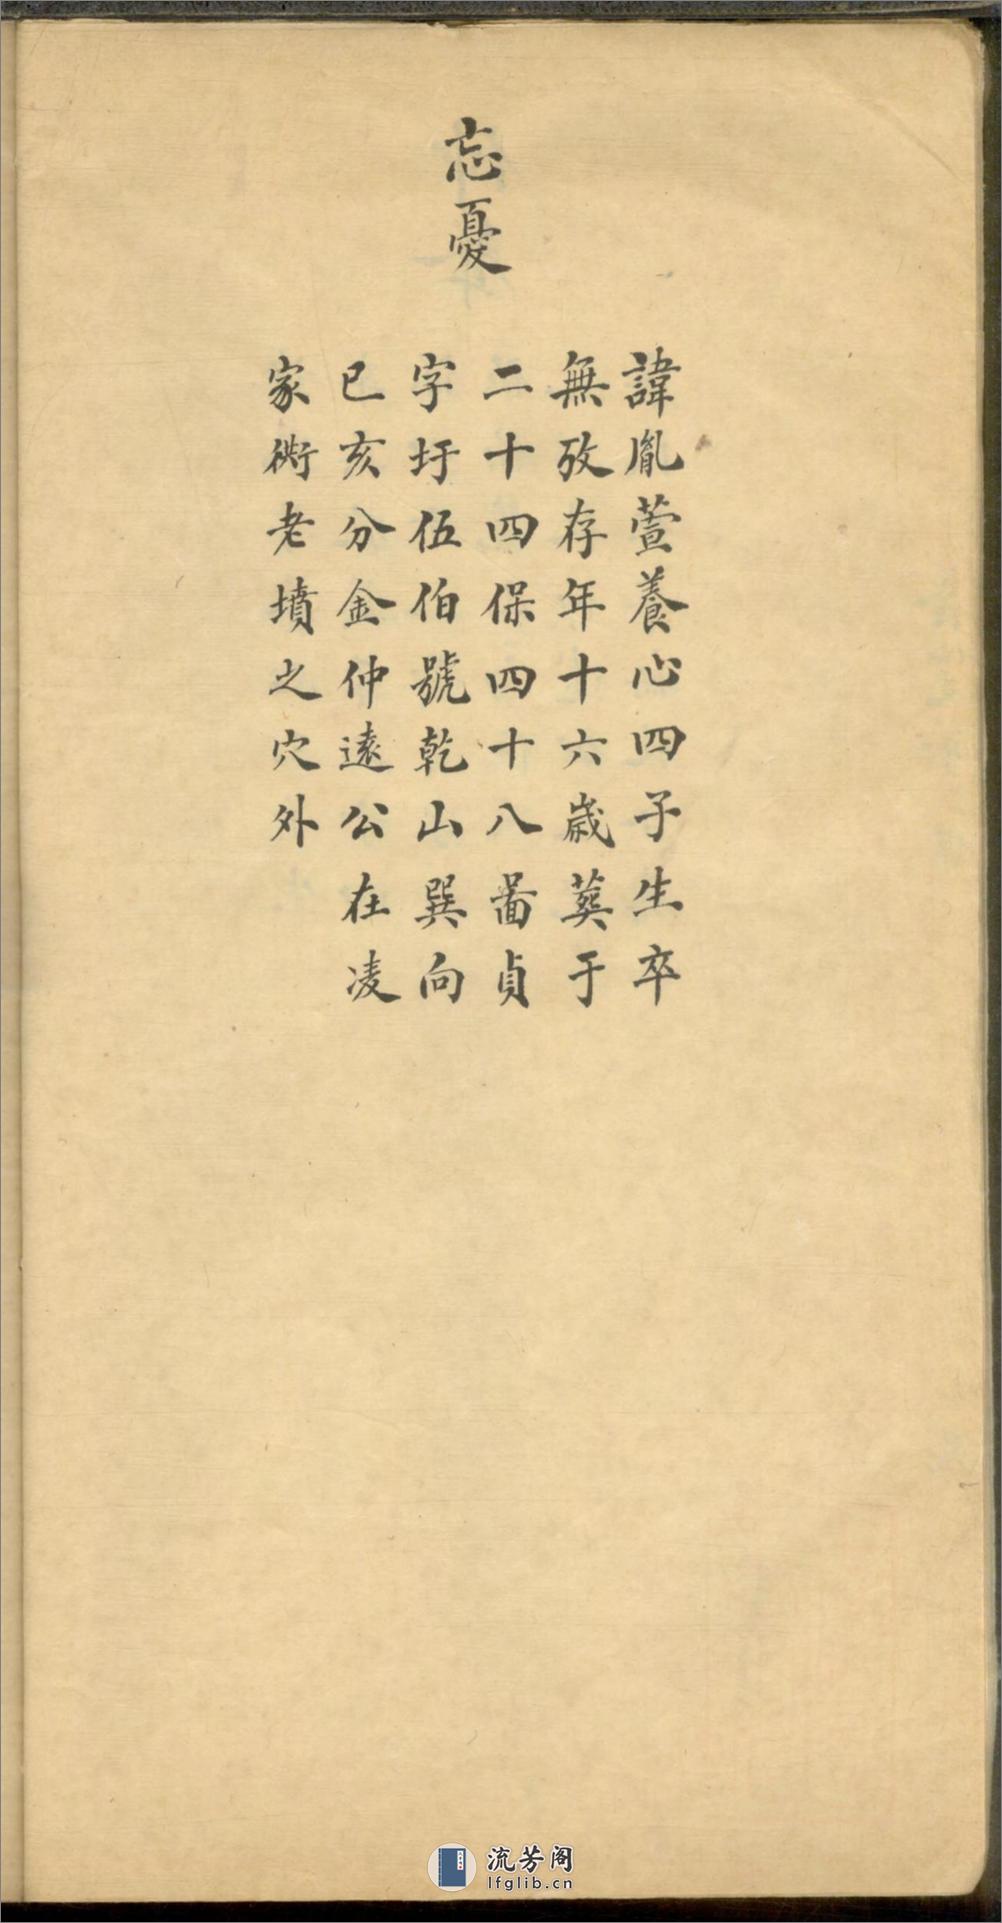 忘憂
諱胤萱養心四子生卒
無攷存年十六歲葬于
二十四保四十八啚貞
字圩伍伯號乾山巽向
已亥分金仲遠公在凌
家衖老墳之穴外
流芳阁
lfglib.cn